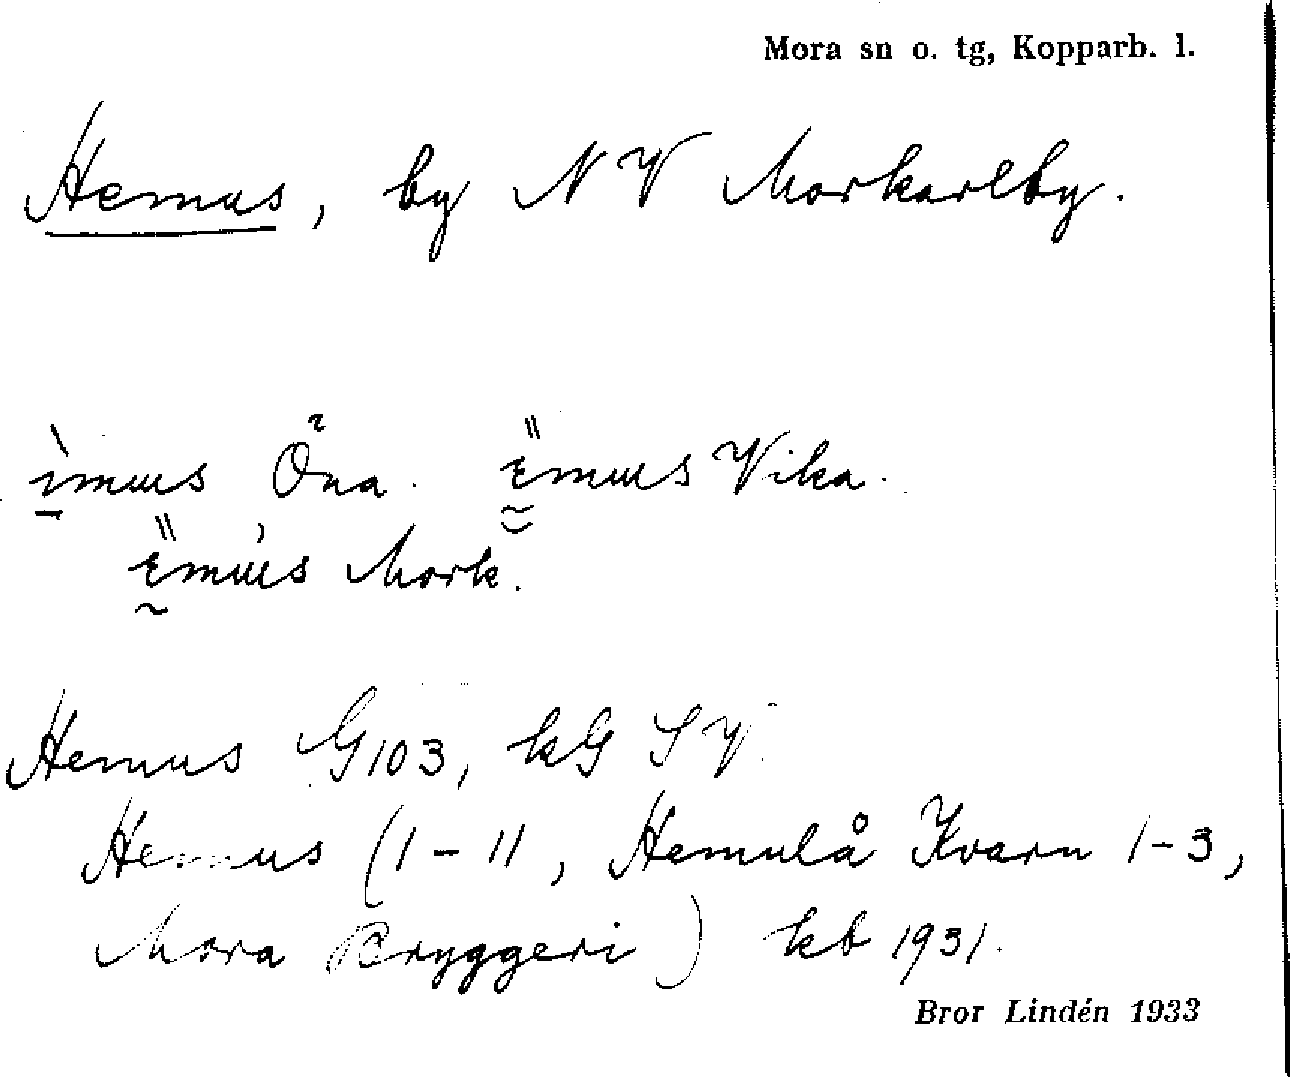 Mora sn o. tg, Kopparb. l.
Hemus, by NV Morkarlby.
Öna. Vika.
Mork.
Hemus G103, kG SV
Hemus (1-11, Hemulå Kvarn 1-3,
Mora Bryggeri) kb 1931.
Bror Lindén 1933